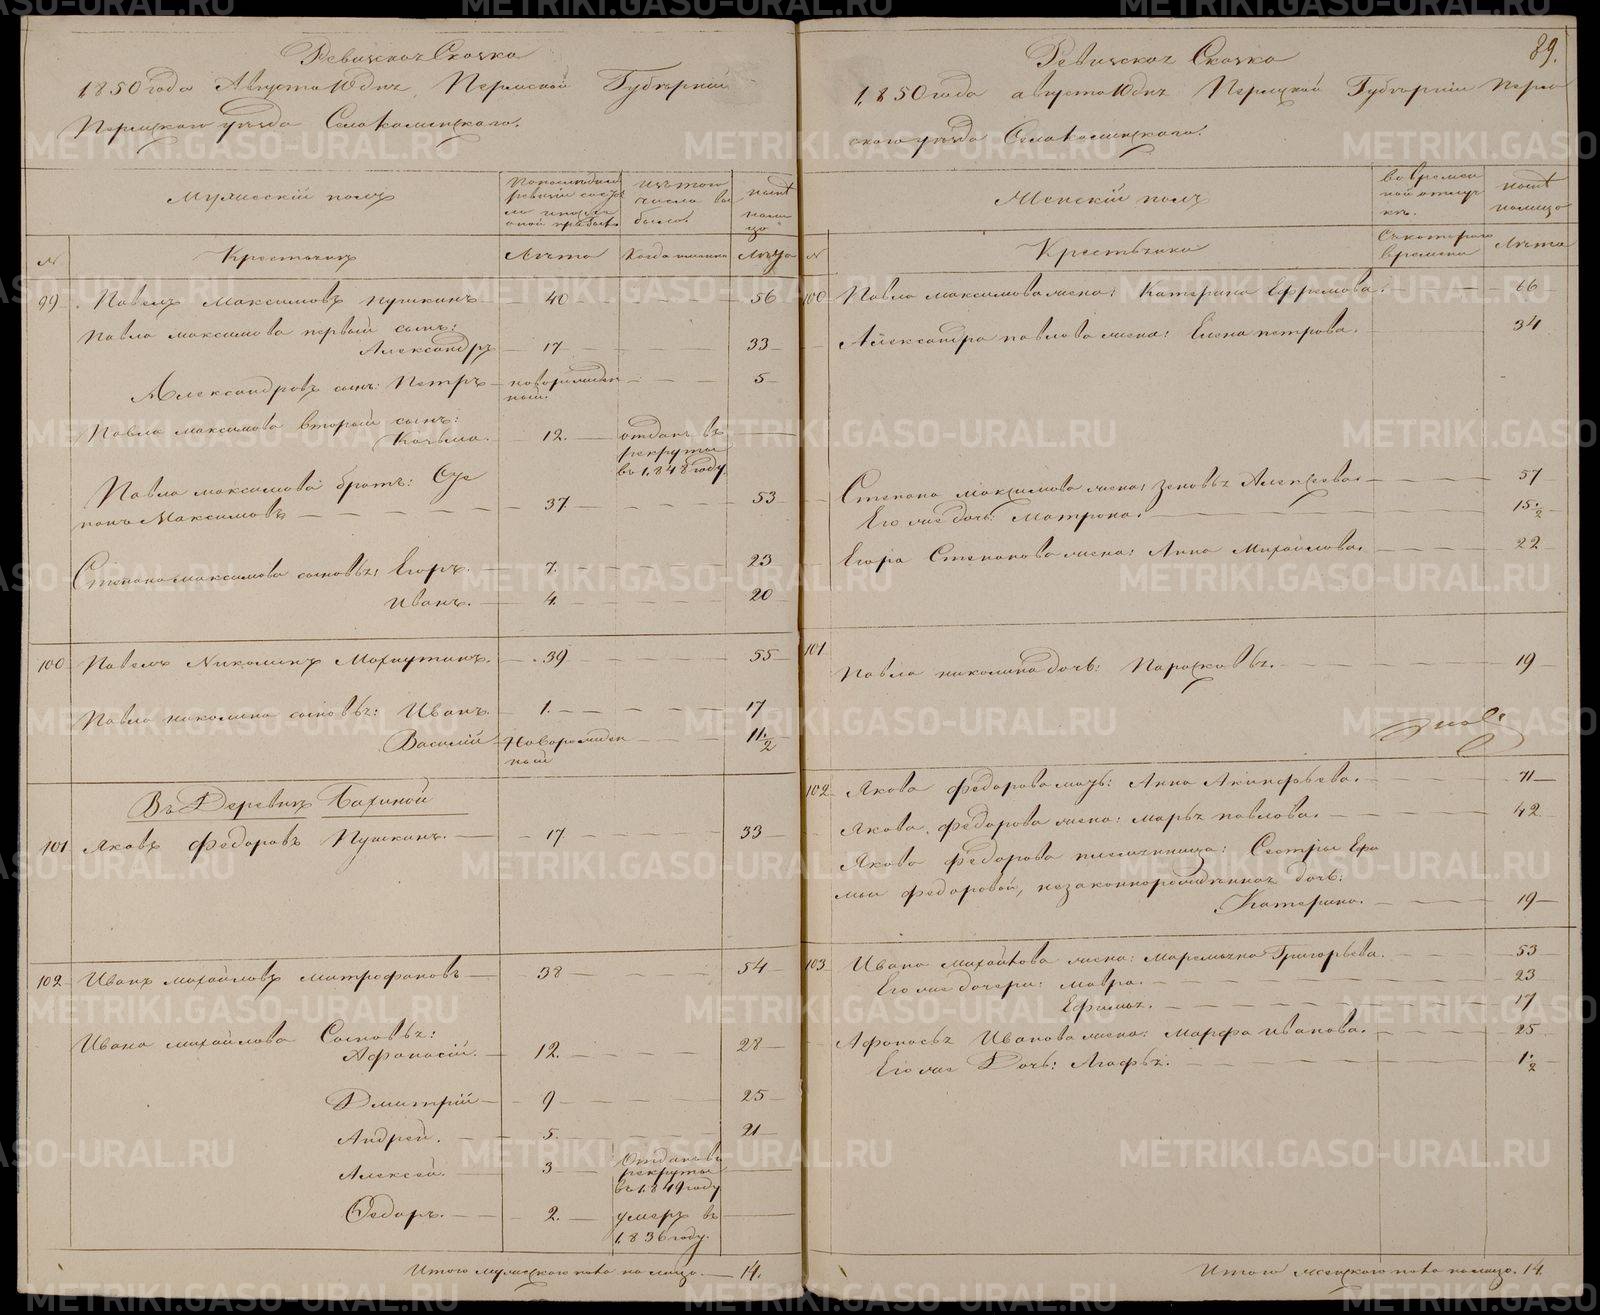 Ревизская Сказка
1850 года Августа 10 дня, Пермской Губернии
Пермского уезда Села Каменскаго.
Мужеский полъ
По последней ревизии состояло и после оной прибыло
Изъ того числа выбыло
Ныне на лицо
№ Крестьянъ Лета Когда именно Лета
99 Павелъ Максимовъ Пушкинъ 40 56
Павла Максимова первый сынъ:
Александръ 17 33
Александровъ сынъ: Петръ новорожденный. 5
Павла Максимова второй сынъ:
Козьма. 12. отданъ въ рекруты въ 1848 году
Павла Максимова братъ: Сте
панъ Максимовъ 37 53
Степана Максимова сыновья: Егоръ. 7. 23
Иванъ. 4. 20
100 Павелъ Николинъ 39 55
Павла Николина сыновья: Иванъ. 1. 17
Василий Новорожденный 11 1/2
Въ Деревне
101 Яковъ Федоровъ Пушкинъ. 17 33
102 Иванъ Михайловъ Митрофановъ 38 54
Ивана Михайлова Сыновья:
Афонасий. 12. 28
Дмитрий 9 25
Андрей. 5. 21
Алексей. 3 Отданъ въ рекруты въ 1849 году
Федоръ. 2. умеръ въ 1836 году.
Итого мужескаго пола на лицо. 14.
89.
Ревизская Сказка
1850 года августа 10 дня Пермской Губернии Перм
скаго уезда Села Каменскаго.
Женский полъ
во временной отлучке.
ныне на лицо
№ Крестьянка Съ котораго времени Лета
100 Павла Максимова жена: Катерина Ефремова. 66
Александра Павлова жена: Елена Петрова. 34
Степана Максимова жена: Зеновья Алексеева. 57
Его же дочь: Матрона. 15 1/2
Егора Степанова жена: Анна Михайлова. 22
101 Павла Николина дочь: Парасковья. 19
102 Якова Федорова мать: Анна Акинфьева. 71
Якова Федорова жена: Марья Павлова. 42
Якова Федорова племянница: Сестры
Федоровой, незаконнорожденная дочь:
Катерина. 19
103 Ивана Михайлова жена: Маремьяна Григорьева. 53
Его же дочери: Мавра. 23
Ефимья. 17
Афонасья Иванова жена: Марфа Иванова. 25
Его же Дочь: Агафья. 1/2
Итого женскаго пола на лицо. 14
METRIKI.GASO-URAL.RU